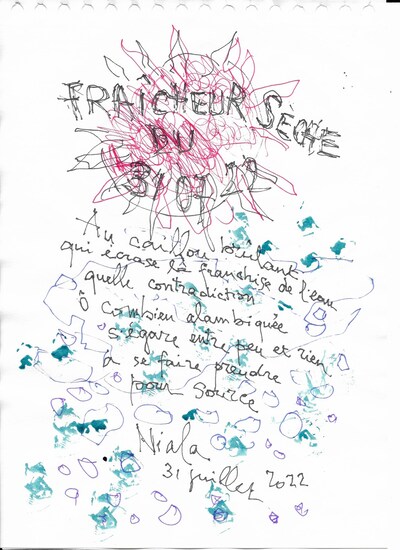 FRAÎCHEUR SÈCHE
DU
31 07 22
Au caillou brûlant
qui écrase la franchise de l'eau
quelle contradiction
Ô combien alambiquée
s'égare entre peu et rien
à se faire prendre
pour source
Niala
31 juillet 2022